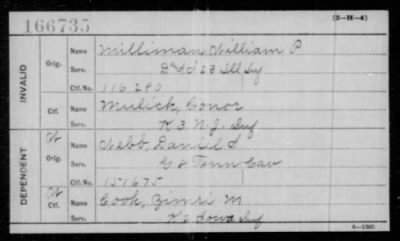 166735
(3-H-4)
INVALID
Orig.
Name Milliman, William P
Serv. Inf
Ctf. No. 116.280
Ctf.
Name Mulick, Conor
Serv. K 3 N.J. Inf
DEPENDENT
W
Orig.
Name Webb, Daniel S
Serv. G 8 Tenn Cav
Ctf. No. 151675
W
Ctf.
Name Cook, Zimri M
Serv. K 2 Iowa Inf
6—1360